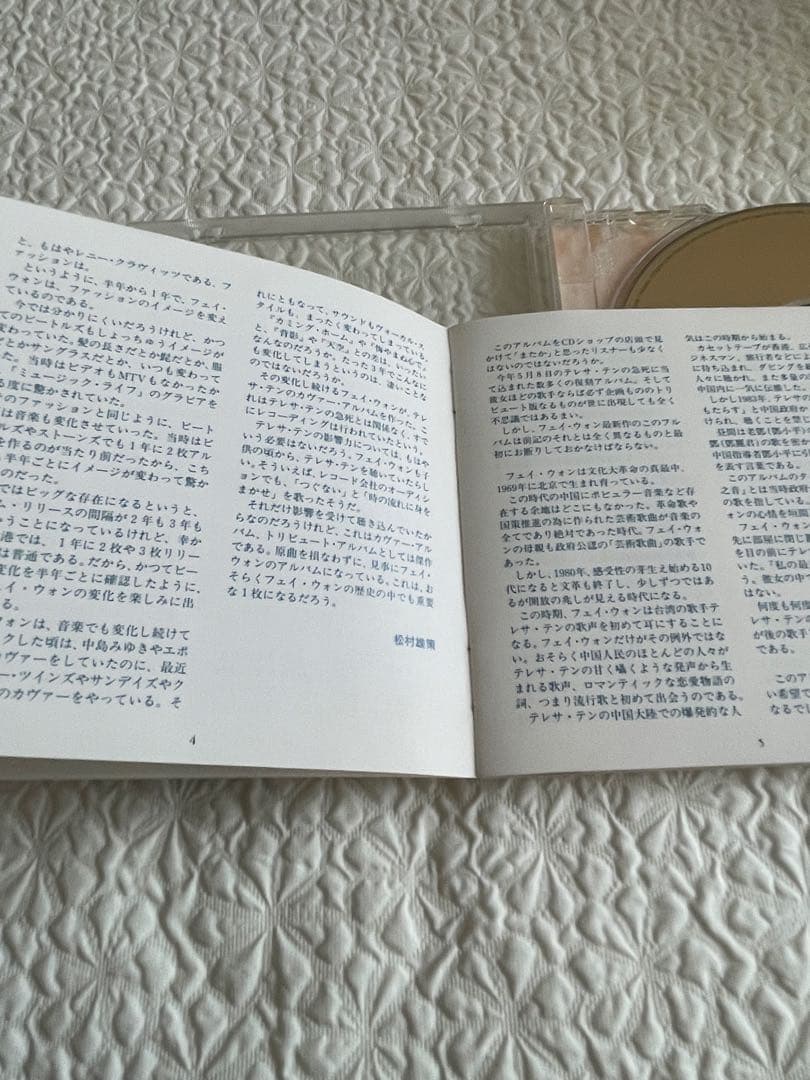 と、もはやレニー・クラヴィッツである、フ
ァッションは。
というように、半年から1年で、フェイ・
ウォンは、ファッションのイメージを変え
ているのである。
今では分かりにくいだろうけれど、かつ
てのビートルズもしょっちゅうイメージが
変わっていた。髪の長さだとか髭だとか、服
だとかサングラスだとか、いつも変わって
た。当時はビデオもMTVもなかったか
「ミュージック・ライフ」のグラビアを
度に驚かされていた。
のファッションと同じように、ビート
は音楽も変化させていった。当時はビ
ルズやストーンズでも1年に2枚アル
を作るのが当たり前だったから、こち
半年ごとにイメージが変わって驚か
のだった。
ではビッグな存在になるというと、
ム・リリースの間隔が2年も3年も
うことになっているけれど、幸か
港では、1年に2枚や3枚リリー
は普通である。だから、かつてビー
変化を半年ごとに確認したように、
ェイ・ウォンの変化を楽しみに出
る。
ォンは、音楽でも変化し続けて
クした頃は、中島みゆきやエポ
カヴァーをしていたのに、最近
ー・ツインズやサンデイズやク
のカヴァーをやっている。そ
れにともなって、サウンドもヴォーカル・ス
タイルも、まったく変わってしまっている。
『カミング・ホーム』や『悔やまぬ心』
と、『背影』や『天空』との差は、いったい
なんなのだろうか。たった3年でこんなに
も変化してしまうというのは、凄いことな
のではないだろうか。
その変化し続けるフェイ・ウォンが、テレ
サ・テンのカヴァー・アルバムを作った。こ
れはテレサ・テンの急死とは関係なく、すで
にレコーディングは行われていたという。
テレサ・テンの影響力については、もはや
いう必要はないだろう。フェイ・ウォンも子
供の頃から、テレサ・テンを聴いていたらし
い。そういえば、レコード会社のオーディシ
ョンでも、「つぐない」と「時の流れに身を
まかせ」を歌ったそうだ。
それだけ影響を受けて聴き込んでいたか
らなのだろうけれど、これはカヴァー・アル
バム、トリビュート・アルバムとしては傑作
である。原曲を損なわずに、見事にフェイ・
ウォンのアルバムになっている。これは、お
そらくフェイ・ウォンの歴史の中でも重要
な1枚になるだろう。
松村雄策
4
このアルバムをCDショップの店頭で見
かけて「またか」と思ったリスナーも少なく
はないのではないだろうか。
今年5月8日のテレサ・テンの急死に当
て込まれた数多くの復刻アルバム。そして
彼女ほどの歌手ならば必ず企画もののトリ
ビュート版なるものが世に出現しても全く
不思議ではあるまい。
しかし、フェイ・ウォン最新作のこのアル
バムは前記のそれとは全く異なるものと最
初にお断りしておかなければならない。
フェイ・ウォンは文化大革命の真最中、
1969年に北京で生まれ育っている。
この時代の中国にポピュラー音楽など存
在する余地はどこにもなかった。革命歌や
国策推進の為に作られた芸術歌曲が音楽の
全てであり絶対であった時代。フェイ・ウォ
ンの母親も政府公認の「芸術歌曲」の歌手で
あった。
しかし、1980年、感受性の芽生え始める10
代になると文革も終了し、少しずつではあ
るが開放の兆しが見える時代になる。
この時期、フェイ・ウォンは台湾の歌手テ
レサ・テンの歌声を初めて耳にすることに
なる。フェイ・ウォンだけがその例外ではな
い。おそらく中国人民のほとんどの人々が
テレサ・テンの甘く囁くような発声から生
まれる歌声、ロマンティックな恋愛物語の
詞、つまり流行歌と初めて出会うのである。
テレサ・テンの中国大陸での爆発的な人
気はこの時期から始まる。
カセットテープが香港、広
ジネスマン、旅行者などによ
に持ち込まれ、ダビングを
人々に聴かれ、また多量の
中国内に一気に伝播し
しかし1983年、テレサの
もたらす」と中国政府
けられ、聴くことを禁じ
昼間は老鄧(鄧小平)の
鄧(鄧麗君)の歌を密か
中国指導者鄧小平に引
を表す言葉である。
このアルバムのタ
之音」とは当時政府
の歌を指している。
ォンの心情を短
フェイ・ウォ
先に部屋に閉じ
を目の前にテレ
いた。「私の最
う。彼女の中
はない。
何度も何
レサ・テンの
が後の歌手
である。
このア
い希望で
なるでし
5